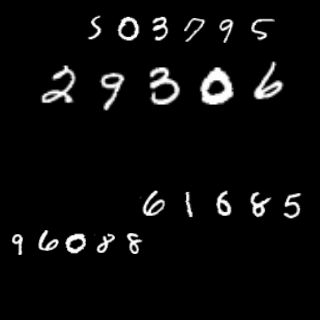 503795
29306
61685
96088